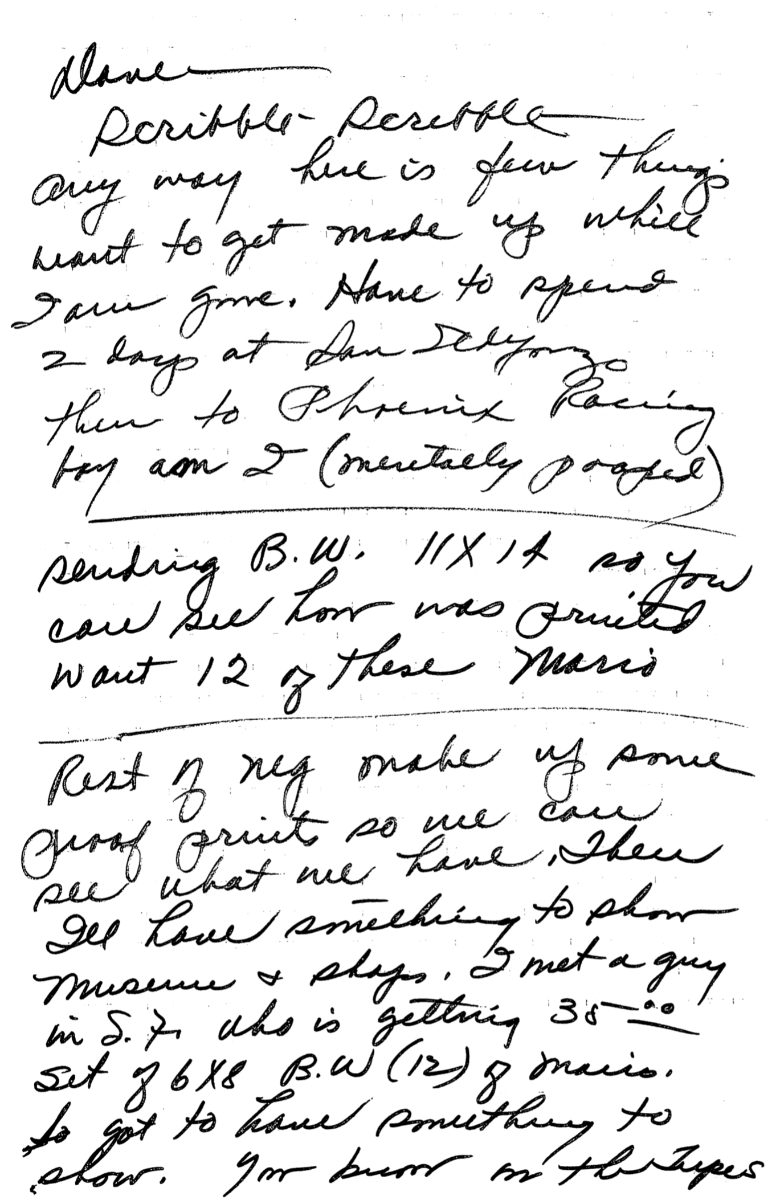 Dave
Scribble - Scribble
any way here is few things
want to get made up while
I am gone. Have to spend
2 days at San
then to Phoenix Racing
boy am I (mentally pooped)
sending B.W. 11X14 so you
can see how was printed
want 12 of these Mario
Rest of neg make up some
proof prints so we can
see what we have. Then
Ill have something to show
Museum & shops. I met a guy
in S.F. who is getting 35.00
set of 6X8 B.W (12) of Mario.
So got to have something to
show. You know on the